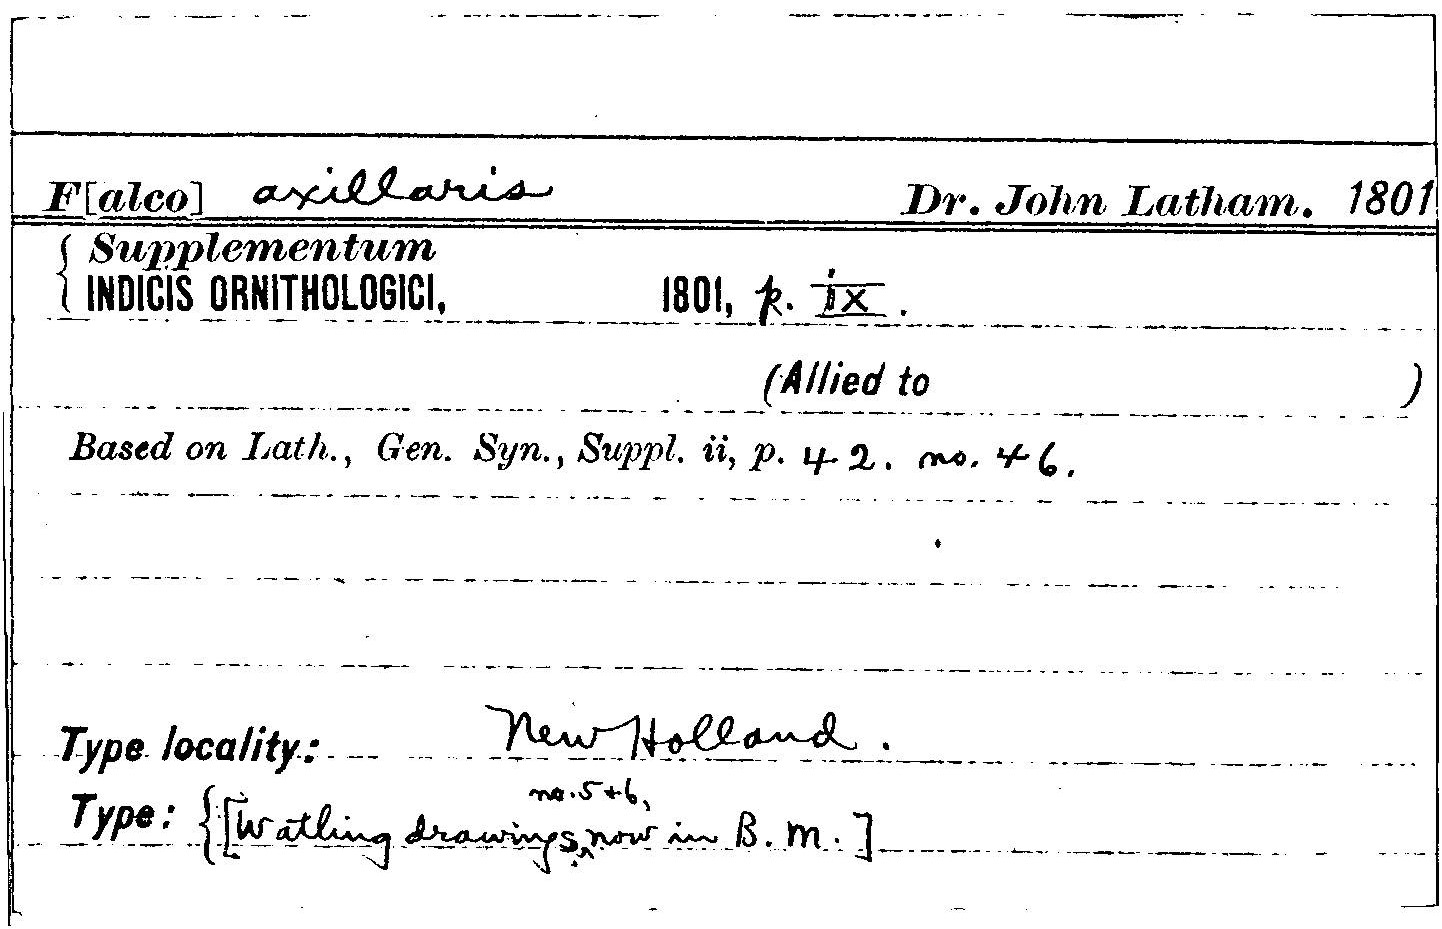 F[alco] axillaris Dr. John Latham. 1801
{ Supplementum
INDICIS ORNITHOLOGICI, 1801, p. ix.
(Allied to )
Based on Lath., Gen. Syn., Suppl. ii, p. 42. no. 46.
Type locality: New Holland.
no. 5 + 6,
Type: {[Watling drawings, ^ now in B. M.]